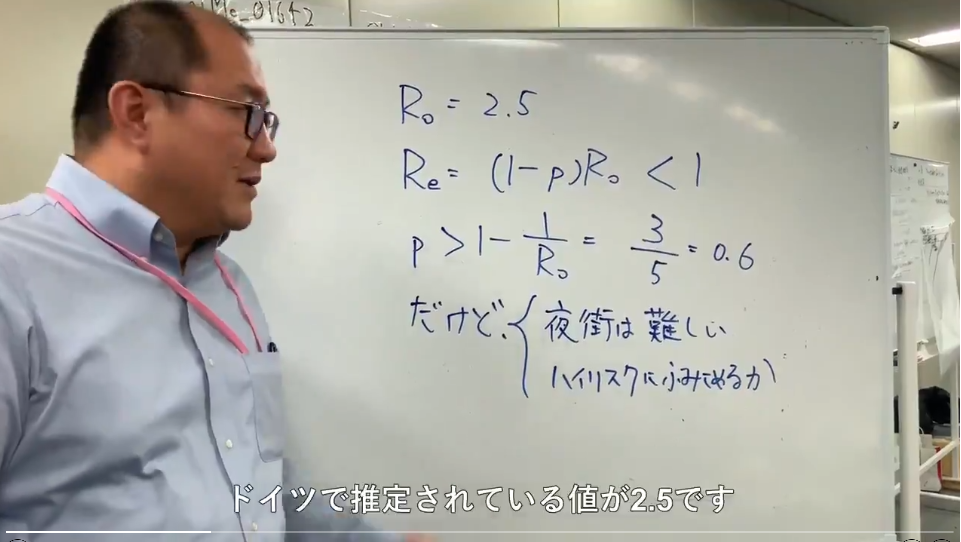 R₀ = 2.5
Re = (1-p)R₀ < 1
p > 1 - 1/R₀ = 3/5 = 0.6
だけど、{ 夜街は難しい
ハイリスクにふみこめるか
ドイツで推定されている値が2.5です